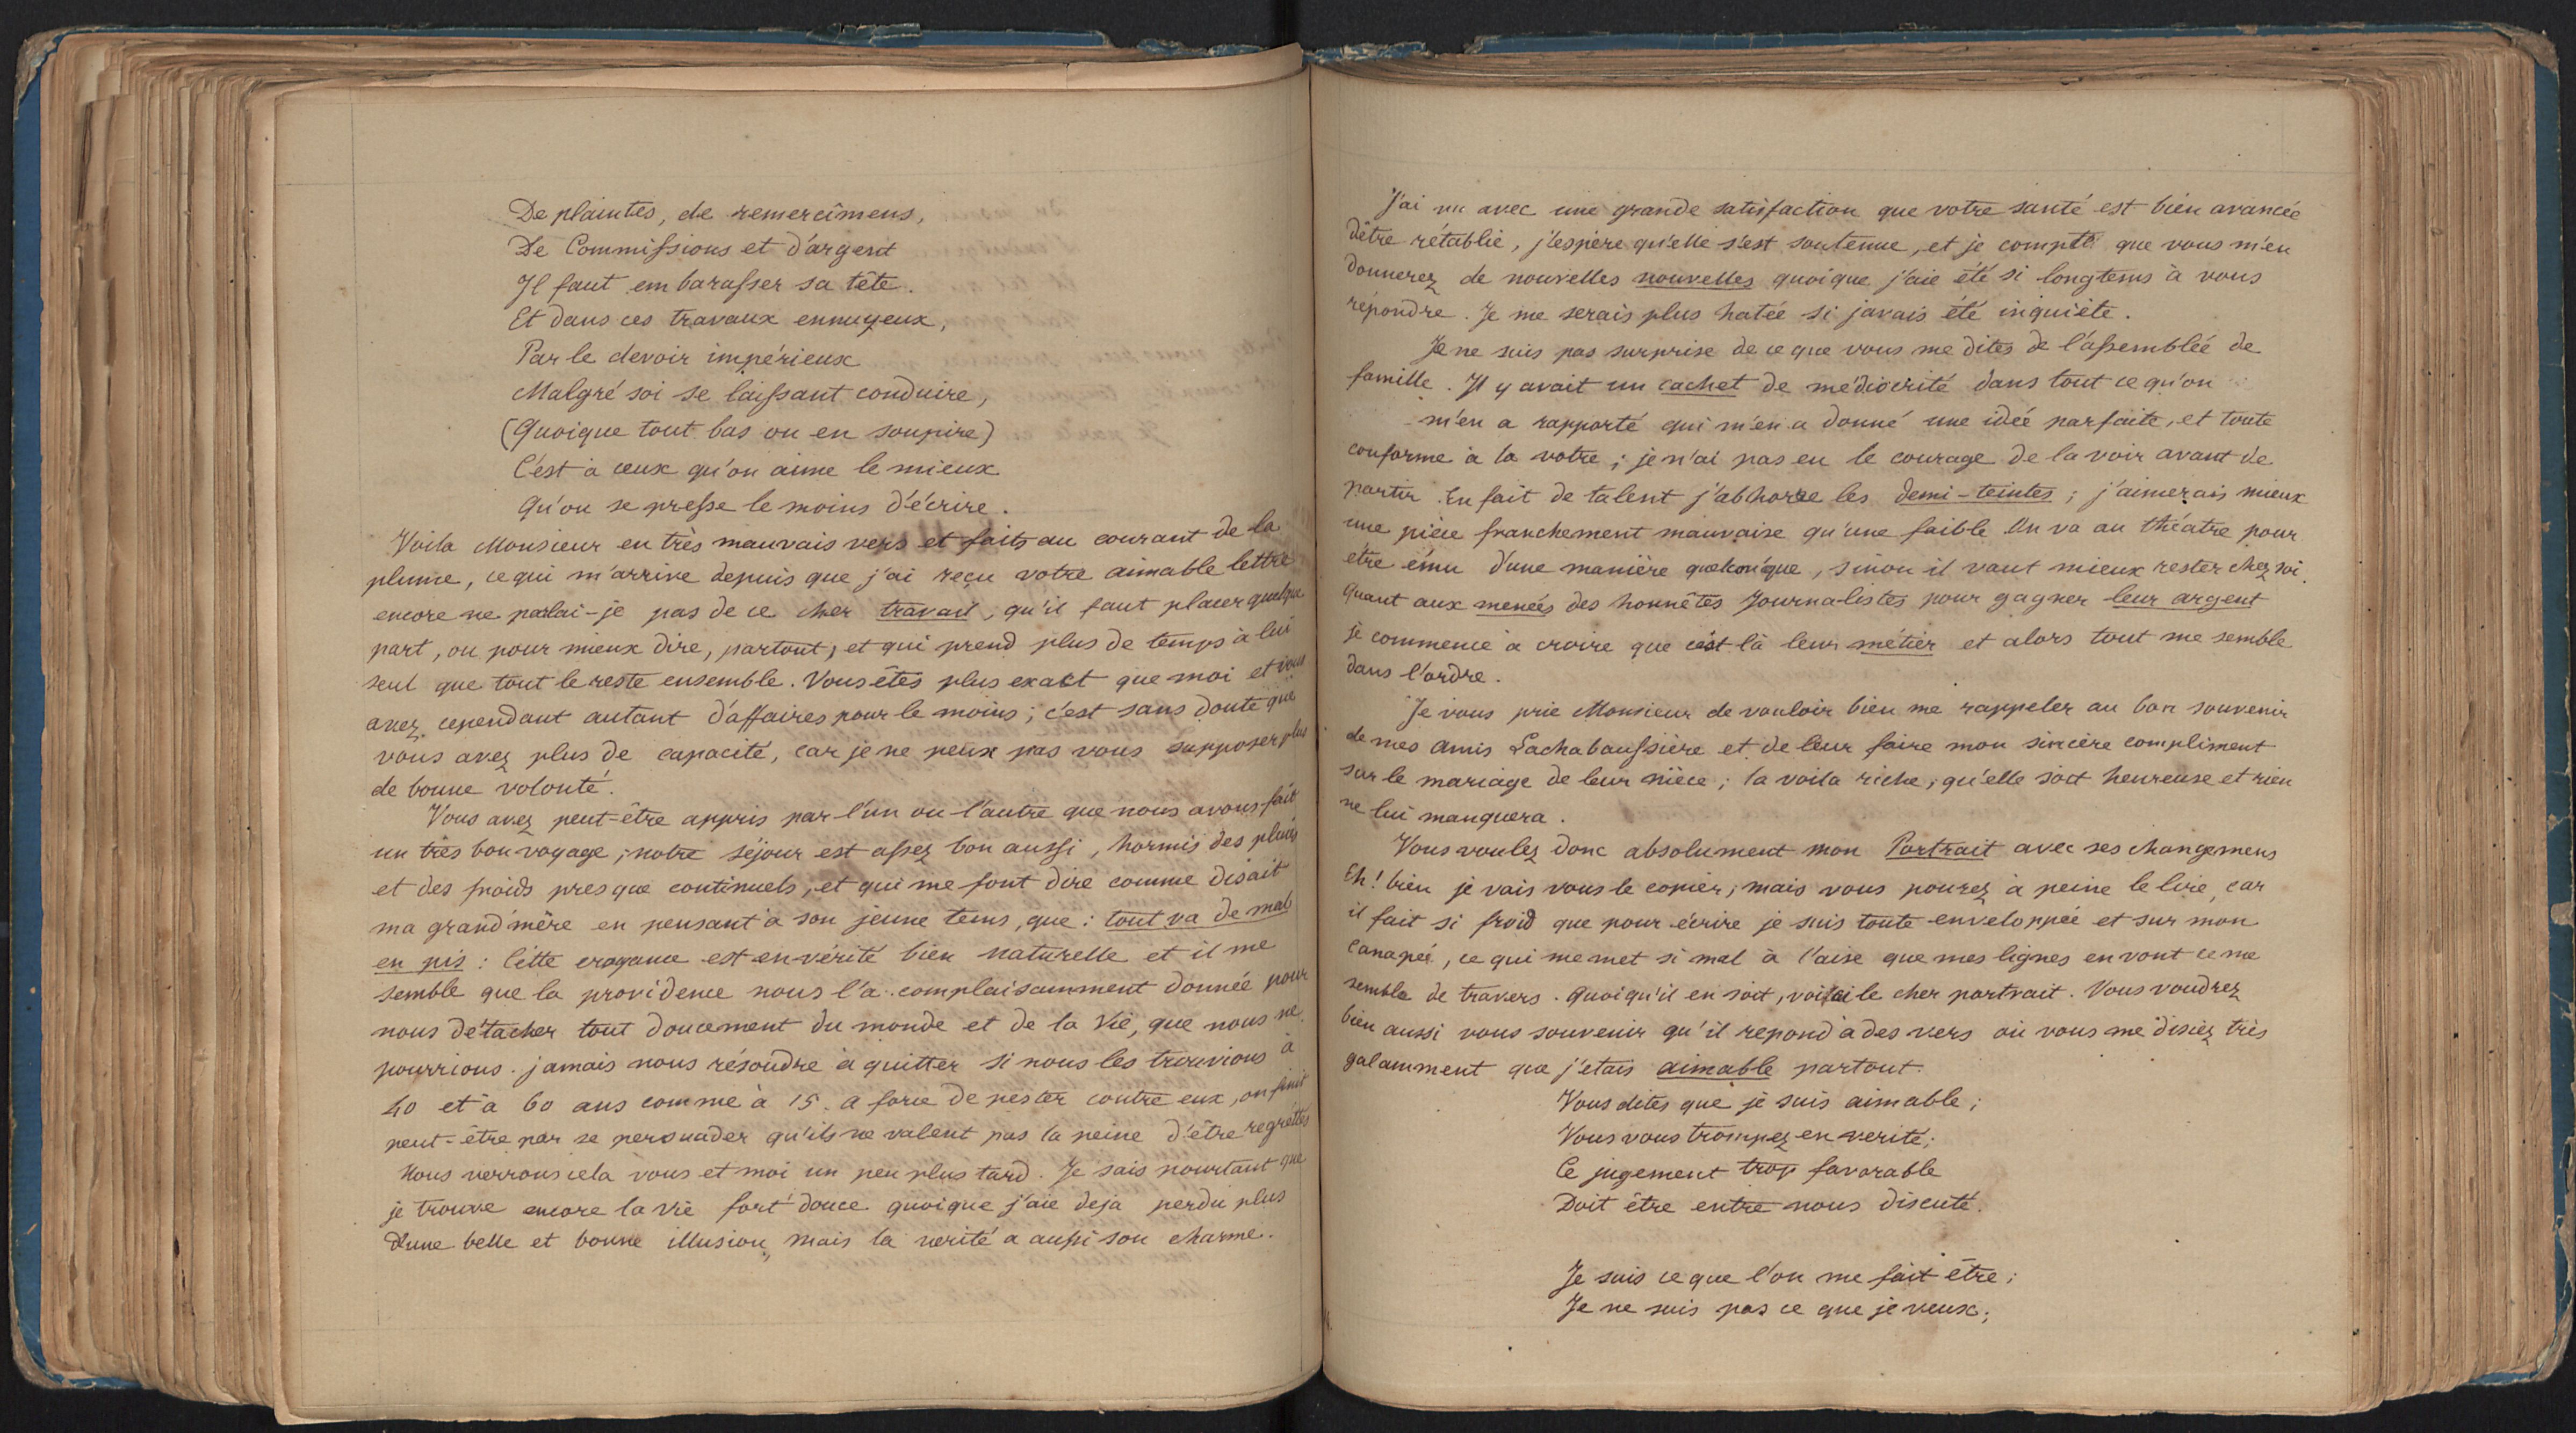 De plaintes, de remercîmens,
De Commissions et d'argent
Il faut embarasser sa tête.
Et dans ces travaux ennuyeux,
Par le devoir impérieux
Malgré soi se laissant conduire,
(Quoique tout bas on en soupire)
C'est à ceux qu'on aime le mieux
Qu'on se presse le moins d'écrire.
Voila Monsieur en très mauvais vers et faits au courant de la
plume, ce qui m'arrive depuis que j'ai reçu votre aimable lettre
encore ne parlai-je pas de ce cher travail, qu'il faut placer quelque
part, ou pour mieux dire, partout, et qui prend plus de temps à lui
seul que tout le reste ensemble. Vous êtes plus exact que moi et vous
avez cependant autant d'affaires pour le moins; c'est sans doute que
vous avez plus de capacité, car je ne peux pas vous supposer plus
de bonne volonté.
Vous avez peut-être appris par l'un ou l'autre que nous avons fait
un très bon voyage; notre séjour est assez bon aussi, hormis des pluies
et des froids presque continuels, et qui me font dire comme disait
ma grand'mère en pensant à son jeune tems, que: tout va de mal
en pis: Cette croyance est en vérité bien naturelle et il me
semble que la providence nous l'a complaisamment donnée pour
nous détacher tout doucement du monde et de la Vie, que nous ne
pourrions jamais nous résoudre à quitter si nous les trouvions à
40 et à 60 ans comme à 15. a force de pester contre eux, on finit
peut-être par se persuader qu'ils ne valent pas la peine d'être regrettés
Nous verrons cela vous et moi un peu plus tard. Je sais pourtant que
je trouve encore la vie fort douce quoique j'aie deja perdu plus
d'une belle et bonne illusion, mais la verité a aussi son charme.
J'ai vu avec une grande satisfaction que votre santé est bien avancée
d'être rétablie, j'espère qu'elle s'est soutenue, et je compte que vous m'en
donnerez de nouvelles nouvelles quoique j'aie été si longtems à vous
répondre. Je me serais plus hatée si javais été inquiète.
Je ne suis pas surprise de ce que vous me dites de l'assemblée de
famille. Il y avait un cachet de médiocrité dans tout ce qu'on
m'en a rapporté qui m'en a donné une idée parfaite, et toute
conforme à la votre; je n'ai pas eu le courage de la voir avant de
partir. En fait de talent j'abhorre les demi-teintes; j'aimerais mieux
une pièce franchement mauvaise qu'une faible On va au théatre pour
etre ému d'une manière quelconque, sinon il vaut mieux rester chez soi.
Quant aux menées des honnêtes Journalistes pour gagner leur argent
je commence à croire que c'est là leur métier et alors tout me semble
dans l'ordre.
Je vous prie Monsieur de vouloir bien me rappeler au bon souvenir
de mes amis Lachabaussière et de leur faire mon sincère compliment
sur le mariage de leur nièce; la voila riche, qu'elle soit heureuse et rien
ne lui manquera.
Vous voulez donc absolument mon Portrait avec ses changemens
Eh! bien je vais vous le copier, mais vous pourez à peine le lire, car
il fait si froid que pour écrire je suis toute enveloppée et sur mon
Canapé, ce qui me met si mal à l'aise que mes lignes en vont ce me
semble de travers. Quoiqu'il en soit, voici le cher portrait. Vous voudrez
bien aussi vous souvenir qu'il repond à des vers où vous me disiez très
galamment que j'etais aimable partout.
Vous dites que je suis aimable;
Vous vous trompez en verité;
Ce jugement trop favorable
Doit être entre nous discuté.
Je suis ce que l'on me fait être;
Je ne suis pas ce que je veux;